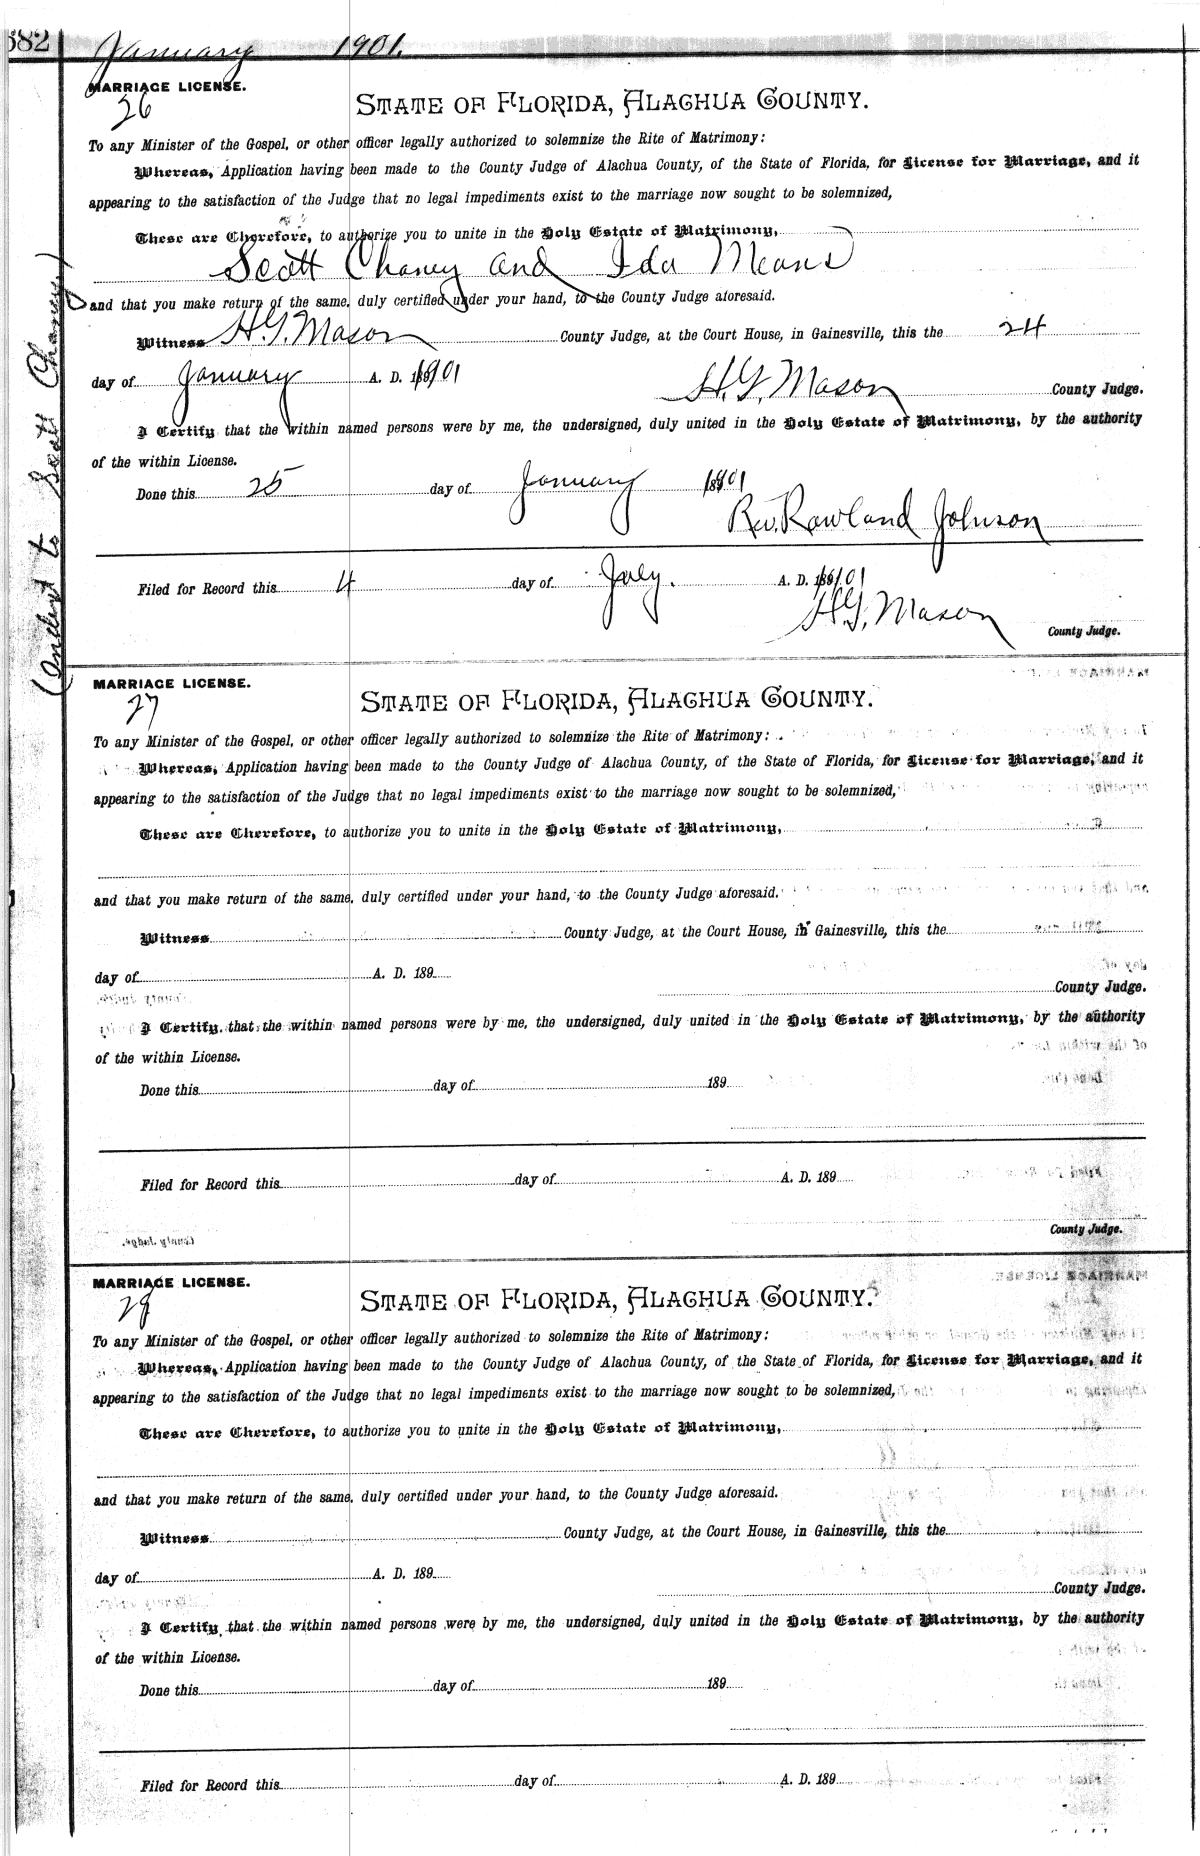 682 January 1901.
MARRIAGE LICENSE.
26
STATE OF FLORIDA, ALACHUA COUNTY.
To any Minister of the Gospel, or other officer legally authorized to solemnize the Rite of Matrimony:
Whereas, Application having been made to the County Judge of Alachua County, of the State of Florida, for License for Marriage, and it
appearing to the satisfaction of the Judge that no legal impediments exist to the marriage now sought to be solemnized,
These are Therefore, to authorize you to unite in the Holy Estate of Matrimony,
Scott Chaney and Ida Means
and that you make return of the same, duly certified under your hand, to the County Judge aforesaid.
Witness H.G. Mason County Judge, at the Court House, in Gainesville, this the 24
day of January A. D. 1901 H.G. Mason County Judge.
I Certify that the within named persons were by me, the undersigned, duly united in the Holy Estate of Matrimony, by the authority
of the within License.
Done this 25 day of January 1901
Rev. Rawland Johnson
Filed for Record this 4 day of July. A. D. 1901
H.G. Mason
County Judge.
to Scott Chaney)
MARRIAGE LICENSE.
27
STATE OF FLORIDA, ALACHUA COUNTY.
To any Minister of the Gospel, or other officer legally authorized to solemnize the Rite of Matrimony:
Whereas, Application having been made to the County Judge of Alachua County, of the State of Florida, for License for Marriage, and it
appearing to the satisfaction of the Judge that no legal impediments exist to the marriage now sought to be solemnized,
These are Therefore, to authorize you to unite in the Holy Estate of Matrimony,
and that you make return of the same, duly certified under your hand, to the County Judge aforesaid.
Witness County Judge, at the Court House, in Gainesville, this the
day of A. D. 189
County Judge.
I Certify, that the within named persons were by me, the undersigned, duly united in the Holy Estate of Matrimony, by the authority
of the within License.
Done this day of 189
Filed for Record this day of A. D. 189
County Judge.
MARRIAGE LICENSE.
28
STATE OF FLORIDA, ALACHUA COUNTY.
To any Minister of the Gospel, or other officer legally authorized to solemnize the Rite of Matrimony:
Whereas, Application having been made to the County Judge of Alachua County, of the State of Florida, for License for Marriage, and it
appearing to the satisfaction of the Judge that no legal impediments exist to the marriage now sought to be solemnized,
These are Therefore, to authorize you to unite in the Holy Estate of Matrimony,
and that you make return of the same, duly certified under your hand, to the County Judge aforesaid.
Witness County Judge, at the Court House, in Gainesville, this the
day of A. D. 189
County Judge.
I Certify, that the within named persons were by me, the undersigned, duly united in the Holy Estate of Matrimony, by the authority
of the within License.
Done this day of 189
Filed for Record this day of A. D. 189